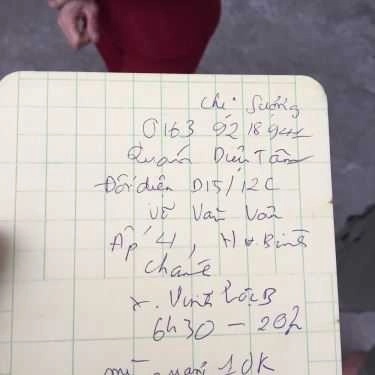 chị Sương
Quán Diệu Tâm
Đối diện D15/12C
Võ Văn Vân
Ấp 4, H. Bình
Chánh
x. Vĩnh Lộc B
6h30 - 20h
10K